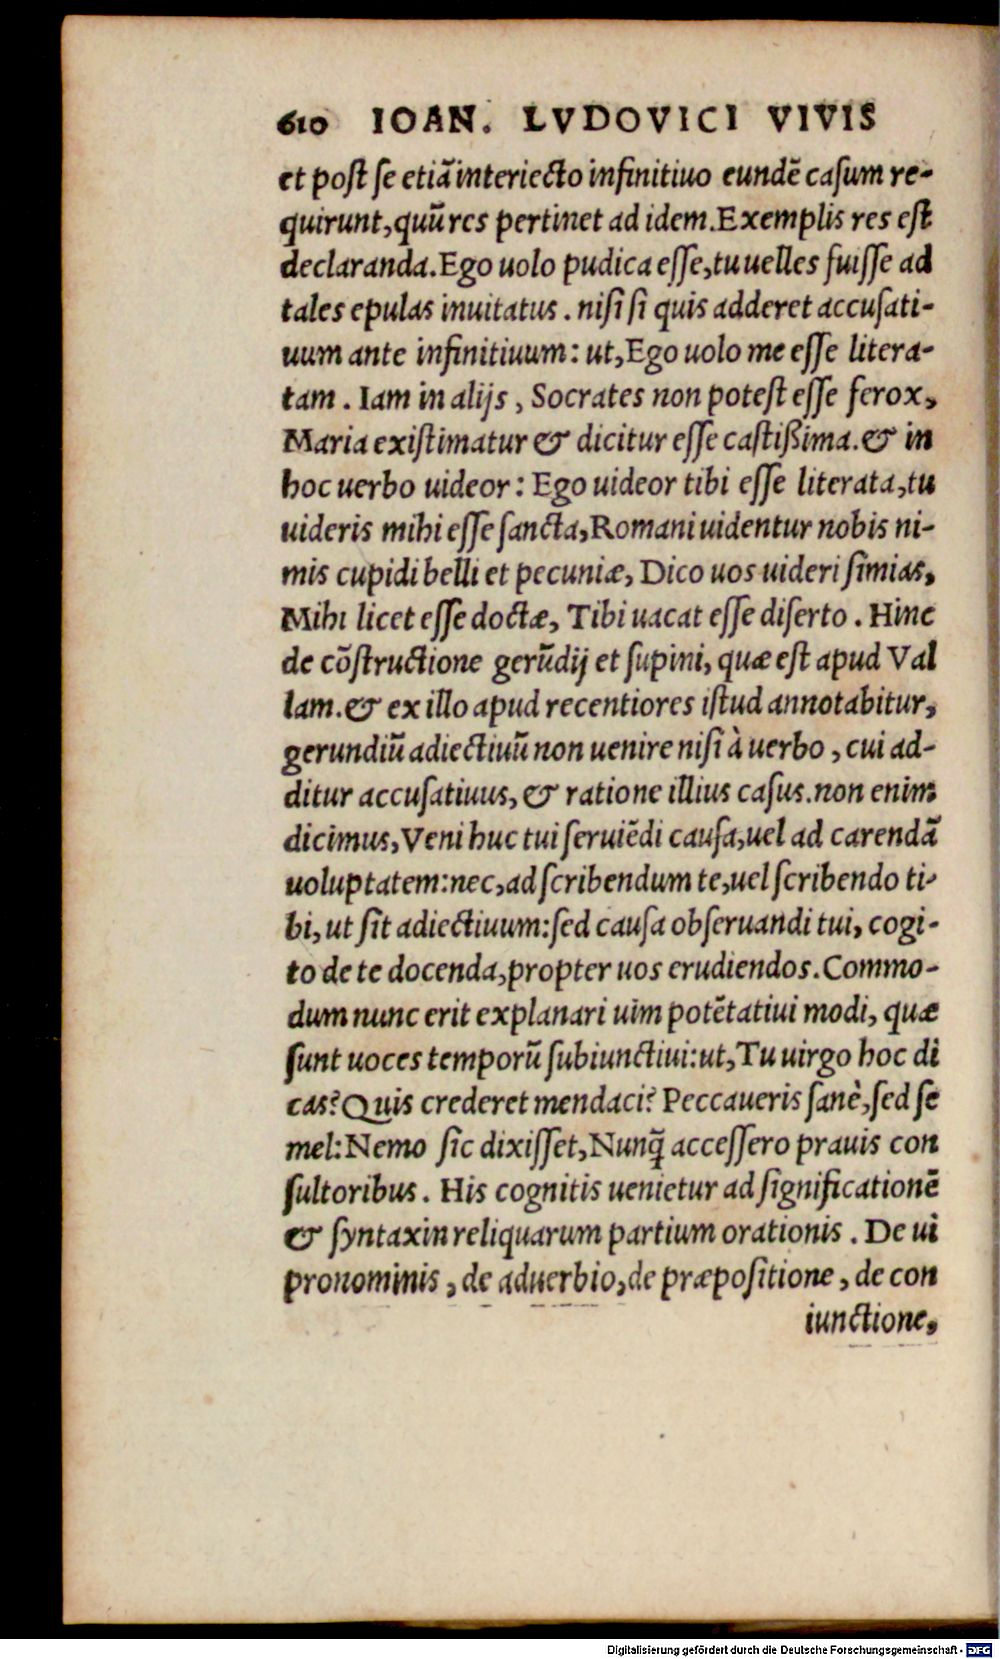 610 IOAN. LVDOVICI VIVIS
et post se etiã interiecto infinitiuo eundẽ casum re-
quirunt, quũ res pertinet ad idem. Exemplis res est
declaranda. Ego uolo pudica esse, tu uelles fuisse ad
tales epulas inuitatus. nisi si quis adderet accusati-
uum ante infinitiuum: ut, Ego uolo me esse litera-
tam. Iam in alijs, Socrates non potest esse ferox,
Maria existimatur & dicitur esse castißima. & in
hoc uerbo uideor: Ego uideor tibi esse literata, tu
uideris mihi esse sancta, Romani uidentur nobis ni-
mis cupidi belli et pecuniæ, Dico uos uideri simias,
Mihi licet esse doctæ, Tibi uacat esse diserto. Hinc
de cõstructione gerũdij et supini, quæ est apud Val
lam. & ex illo apud recentiores istud annotabitur,
gerundiũ adiectiuũ non uenire nisi à uerbo, cui ad-
ditur accusatiuus, & ratione illius casus. non enim
dicimus, Veni huc tui seruiẽdi causa, uel ad carendã
uoluptatem: nec, ad scribendum te, uel scribendo ti-
bi, ut sit adiectiuum: sed causa obseruandi tui, cogi-
to de te docenda, propter uos erudiendos. Commo-
dum nunc erit explanari uim potẽtatiui modi, quæ
sunt uoces temporũ subiunctiui: ut, Tu uirgo hoc di
cas? Quis crederet mendaci? Peccaueris sanè, sed se
mel: Nemo sic dixisset, Nunq̃ accessero prauis con
sultoribus. His cognitis uenietur ad significationẽ
& syntaxin reliquarum partium orationis. De ui
pronominis, de aduerbio, de præpositione, de con
iunctione,
Digitalisierung gefördert durch die Deutsche Forschungsgemeinschaft - DFG